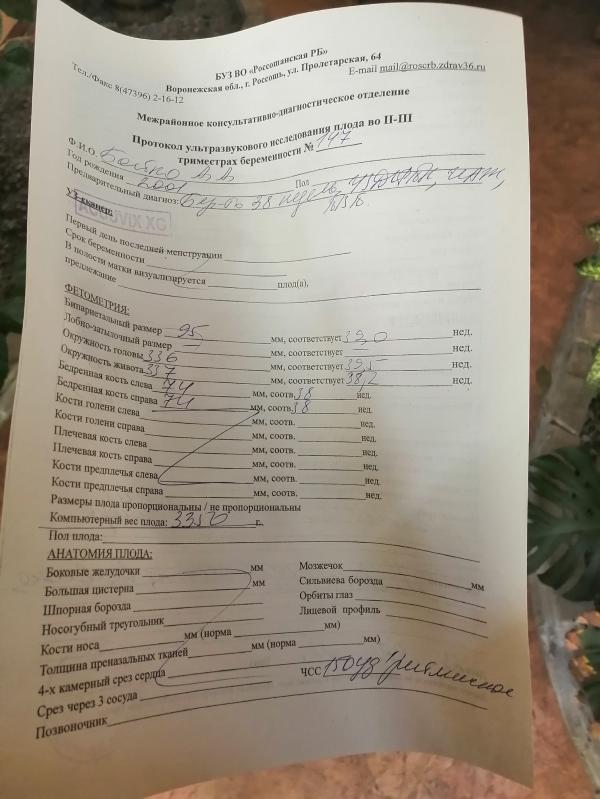 БУЗ ВО «Россошанская РБ»
Воронежская обл., г. Россошь, ул. Пролетарская, 64
Тел./Факс 8(47396) 2-16-12 E-mail mail@roscrb.zdrav36.ru
Межрайонное консультативно-диагностическое отделение
Протокол ультразвукового исследования плода во II-III
триместрах беременности № 147
Ф.И.О. Бойко В В
Год рождения 2001 Пол
Предварительный диагноз: Бер-ть 38 недель,
УЗ-сканер: ACCUVIX XG
Первый день последней менструации
Срок беременности
В полости матки визуализируется плод(а),
предлежание
ФЕТОМЕТРИЯ:
Бипариетальный размер 95 мм, соответствует 39,0 нед.
Лобно-затылочный размер — мм, соответствует нед.
Окружность головы 336 мм, соответствует 39,5 нед.
Окружность живота 337 мм, соответствует 38,2 нед.
Бедренная кость слева 74 мм, соотв. 38 нед.
Бедренная кость справа 74 мм, соотв. 38 нед.
Кости голени слева мм, соотв. нед.
Кости голени справа мм, соотв. нед.
Плечевая кость слева мм, соотв. нед.
Плечевая кость справа мм, соотв. нед.
Кости предплечья слева мм, соотв. нед.
Кости предплечья справа мм, соотв. нед.
Размеры плода пропорциональны / не пропорциональны
Компьютерный вес плода: 3350 г.
Пол плода:
АНАТОМИЯ ПЛОДА:
Боковые желудочки мм Мозжечок мм
Большая цистерна мм Сильвиева борозда
Шпорная борозда Орбиты глаз
Носогубный треугольник Лицевой профиль
Кости носа мм (норма мм)
Толщина преназальных тканей мм (норма мм)
4-х камерный срез сердца ЧСС 150 уд ритмичное
Срез через 3 сосуда
Позвоночник